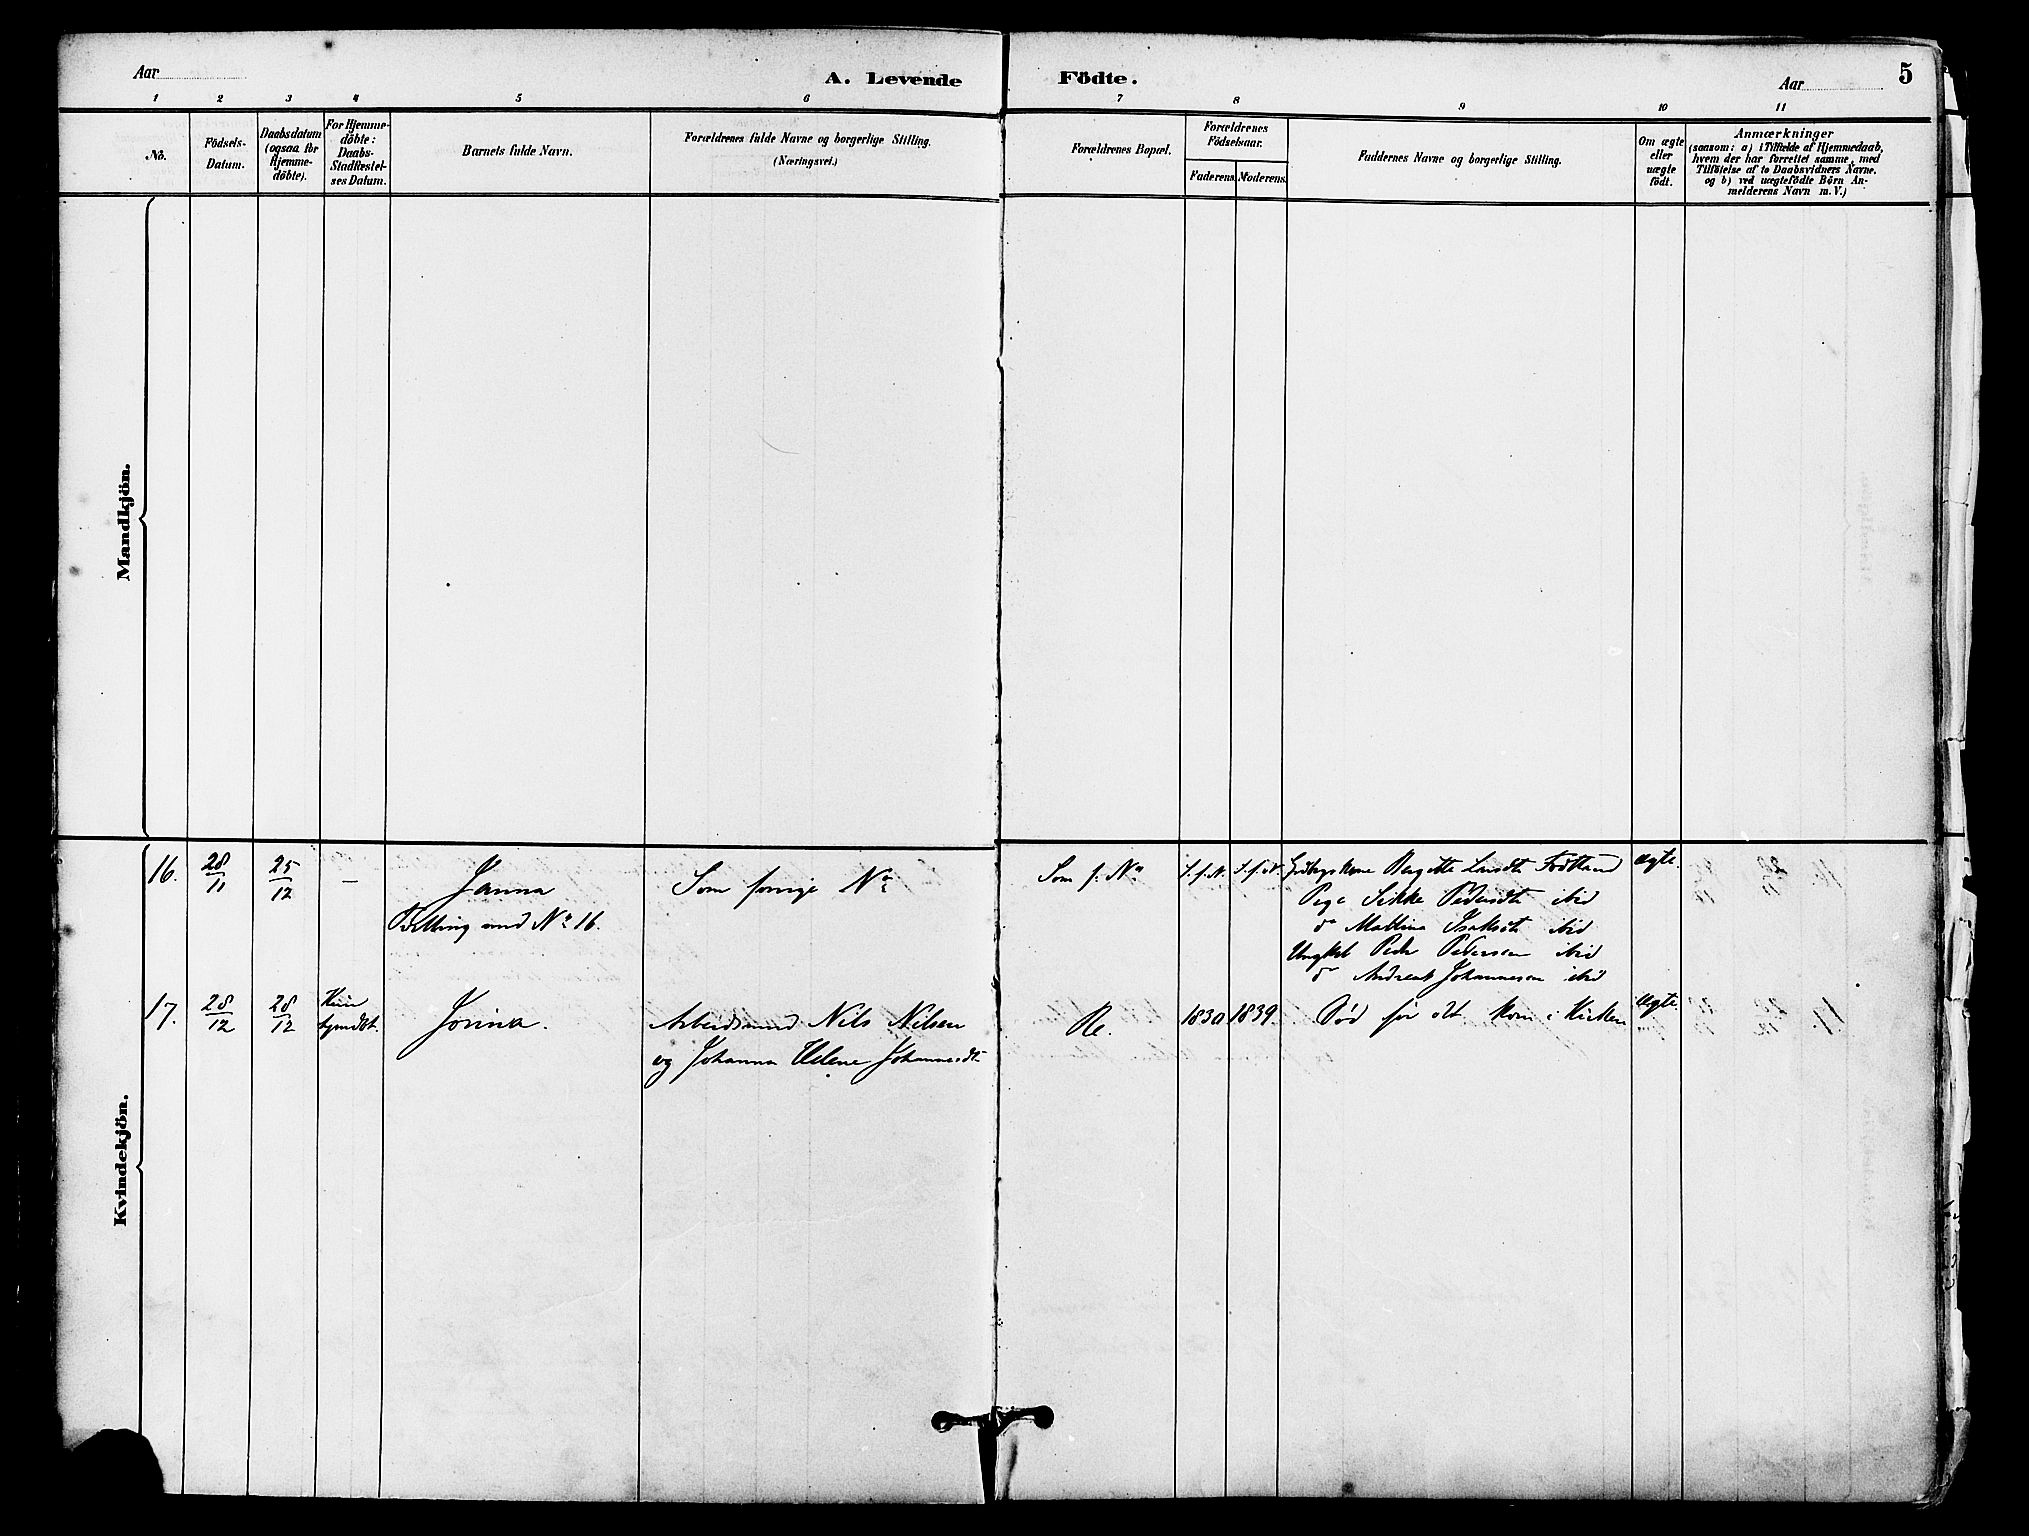 Aar
A. Levende
Födte.
Aar
5
1 2 3 4 5 6 7 8 9 10 11
No.
Födsels-
Datum.
Daabsdatum
(ogsaa for
Hjemme-
döbte).
For Hjemme-
döbte:
Daabs-
Stadfæstel-
ses Datum.
Barnets fulde Navn.
Forældrenes fulde Navne og borgerlige Stilling.
(Næringsvei.)
Forældrenes Bopæl.
Forældrenes
Födselsaar.
Faderens. Moderens.
Faddernes Navne og borgerlige Stilling.
Om ægte
eller
uægte
födt.
Anmærkninger
(saasom: a) i Tilfælde af Hjemmedaab,
hvem der har forrettet samme, med
Tilföielse af to Daabsvidners Navne.
og b) ved uægtefödte Börn An-
melderens Navn m.V.)
Mandkjön.
Kvindekjön.
16. 28/11 25/12 — Janna
Tvilling med No 16.
Som forrige No
Som f. No S.f.N. S.f.N.
Bergitte Larsdt Fodtland
Pige Sikke Pedersdt ibid
do Mallina Isaksdt ibid
Ungkl Peder Pedersen ibid
do Andreas Johannesen ibid
ægte.
17. 28/12 28/12
Jorina.
Arbeidsmand Nils Nilsen
og Johanna Helene Johannesdt
Re. 1830 1839. Död för det kom i Kirken ægte.